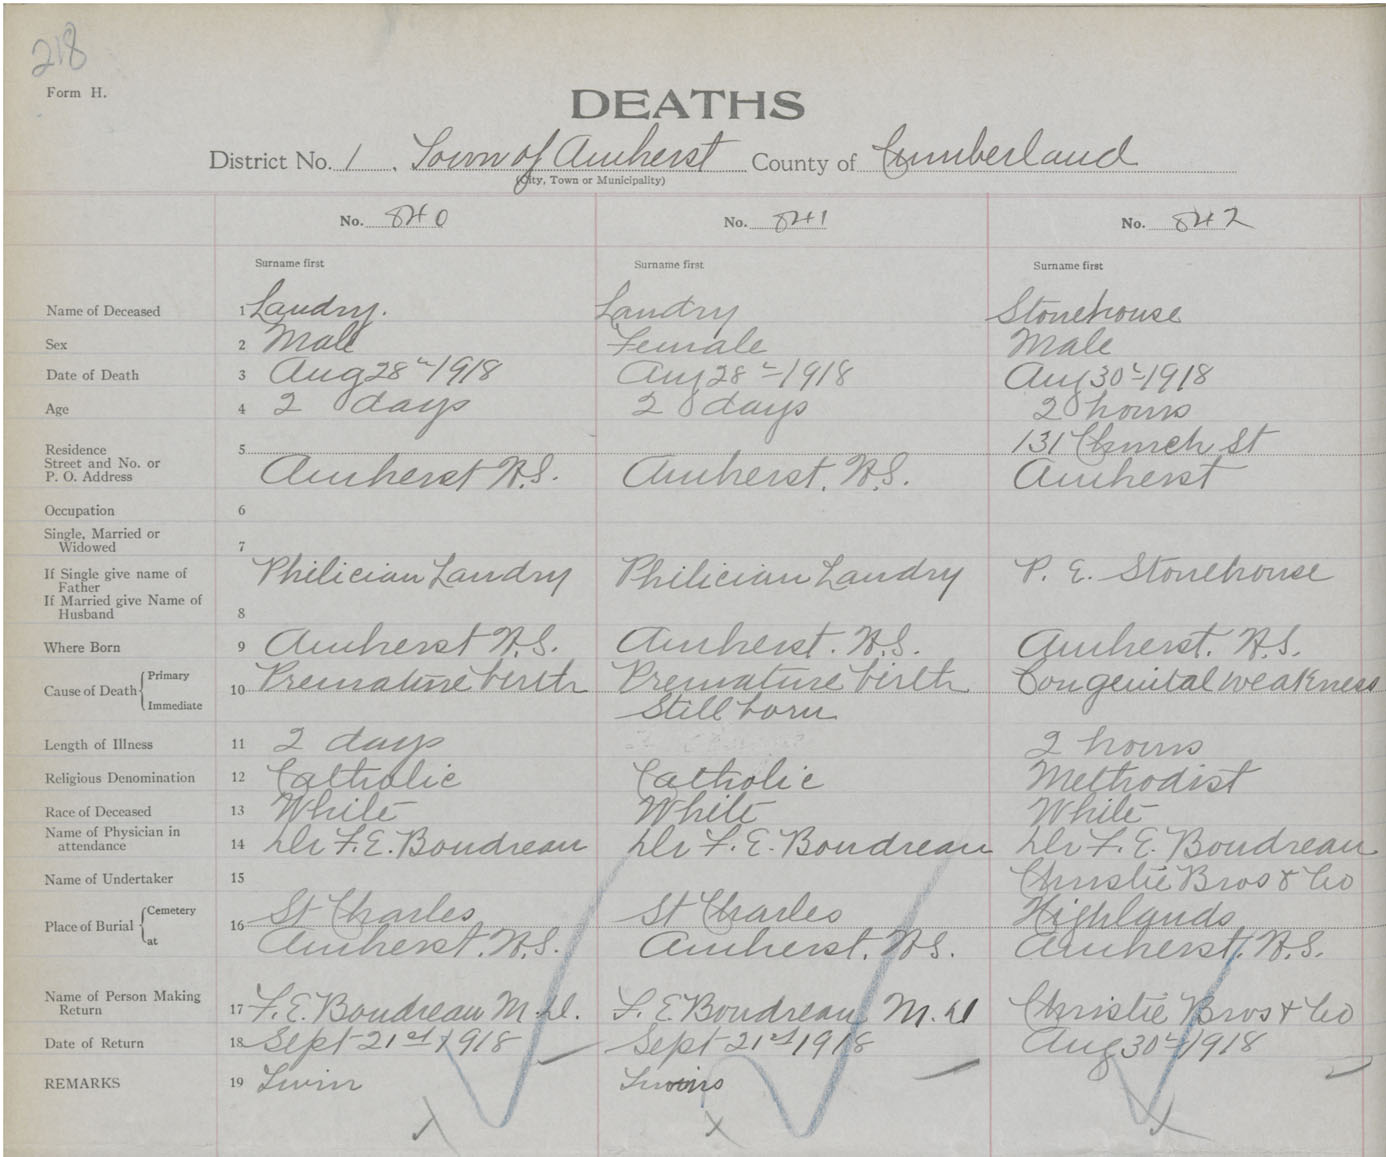 218
Form H.
DEATHS
District No. 1, Town of Amherst County of Cumberland
(City, Town or Municipality)
No. 840 No. 841 No. 842
Surname first Surname first Surname first
Name of Deceased 1 Landry. Landry Stonehouse
Sex 2 Male Female Male
Date of Death 3 Aug 28th 1918 Aug 28th 1918 Aug 30th 1918
Age 4 2 days 2 days 2 hours
131 Church St
Residence 5
Street and No. or
P. O. Address Amherst N.S. Amherst. N.S. Amherst
Occupation 6
Single, Married or
Widowed 7
If Single give name of Philician Landry Philician Landry P. E. Stonehouse
Father
If Married give Name of
Husband 8
Where Born 9 Amherst N.S. Amherst. N.S. Amherst. N.S.
Primary
Cause of Death 10 Premature birth Premature birth Congenital weakness
Immediate Still born
Length of Illness 11 2 days 2 hours
Religious Denomination 12 Catholic Catholic Methodist
Race of Deceased 13 White White White
Name of Physician in
attendance 14 Dr F. E. Boudreau Dr F. E. Boudreau Dr F. E. Boudreau
Name of Undertaker 15 Christie Bros & Co
Cemetery St Charles St Charles Highlands
Place of Burial 16
at Amherst. N.S. Amherst. N.S. Amherst. N.S.
Name of Person Making
Return 17 F. E. Boudreau M.D. F. E Boudreau M.D Christie Bros & Co
Date of Return 18 Sept 21st 1918 Sept 21st 1918 Aug 30th 1918
REMARKS 19 Twin Twins